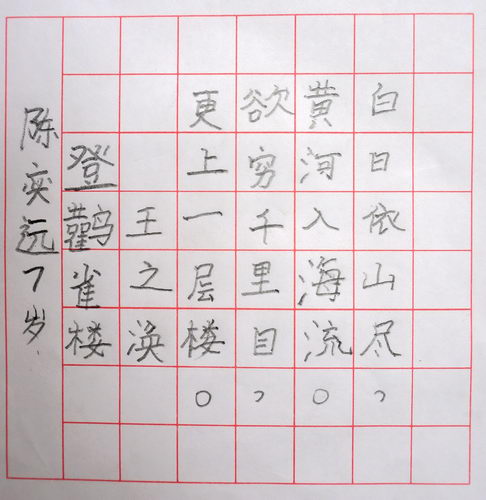 白日依山尽，
黄河入海流。
欲穷千里目，
更上一层楼。
王之涣
登鹳雀楼
陈奕远7岁